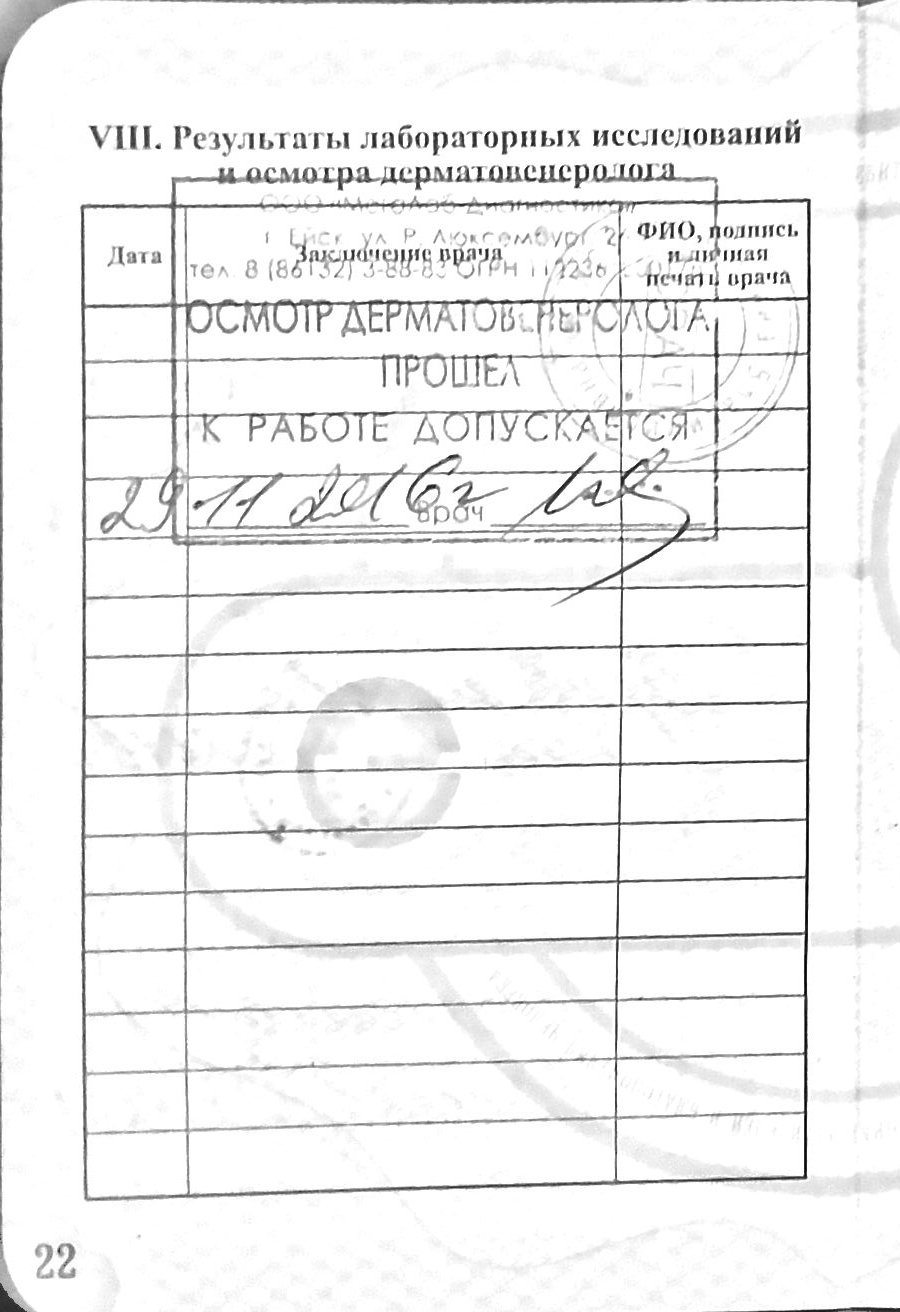 VIII. Результаты лабораторных исследований
и осмотра дерматовенеролога
ООО «МегаЛаб-Диагностика»
г. Ейск ул. Р. Люксембург
тел. 8 (86132) 3-88-83 ОГРН
Дата
Заключение врача
ФИО, подпись
и личная
печать врача
ОСМОТР ДЕРМАТОВЕНЕРОЛОГА
ПРОШЕЛ
К РАБОТЕ ДОПУСКАЕТСЯ
29 11 2016г врач
22